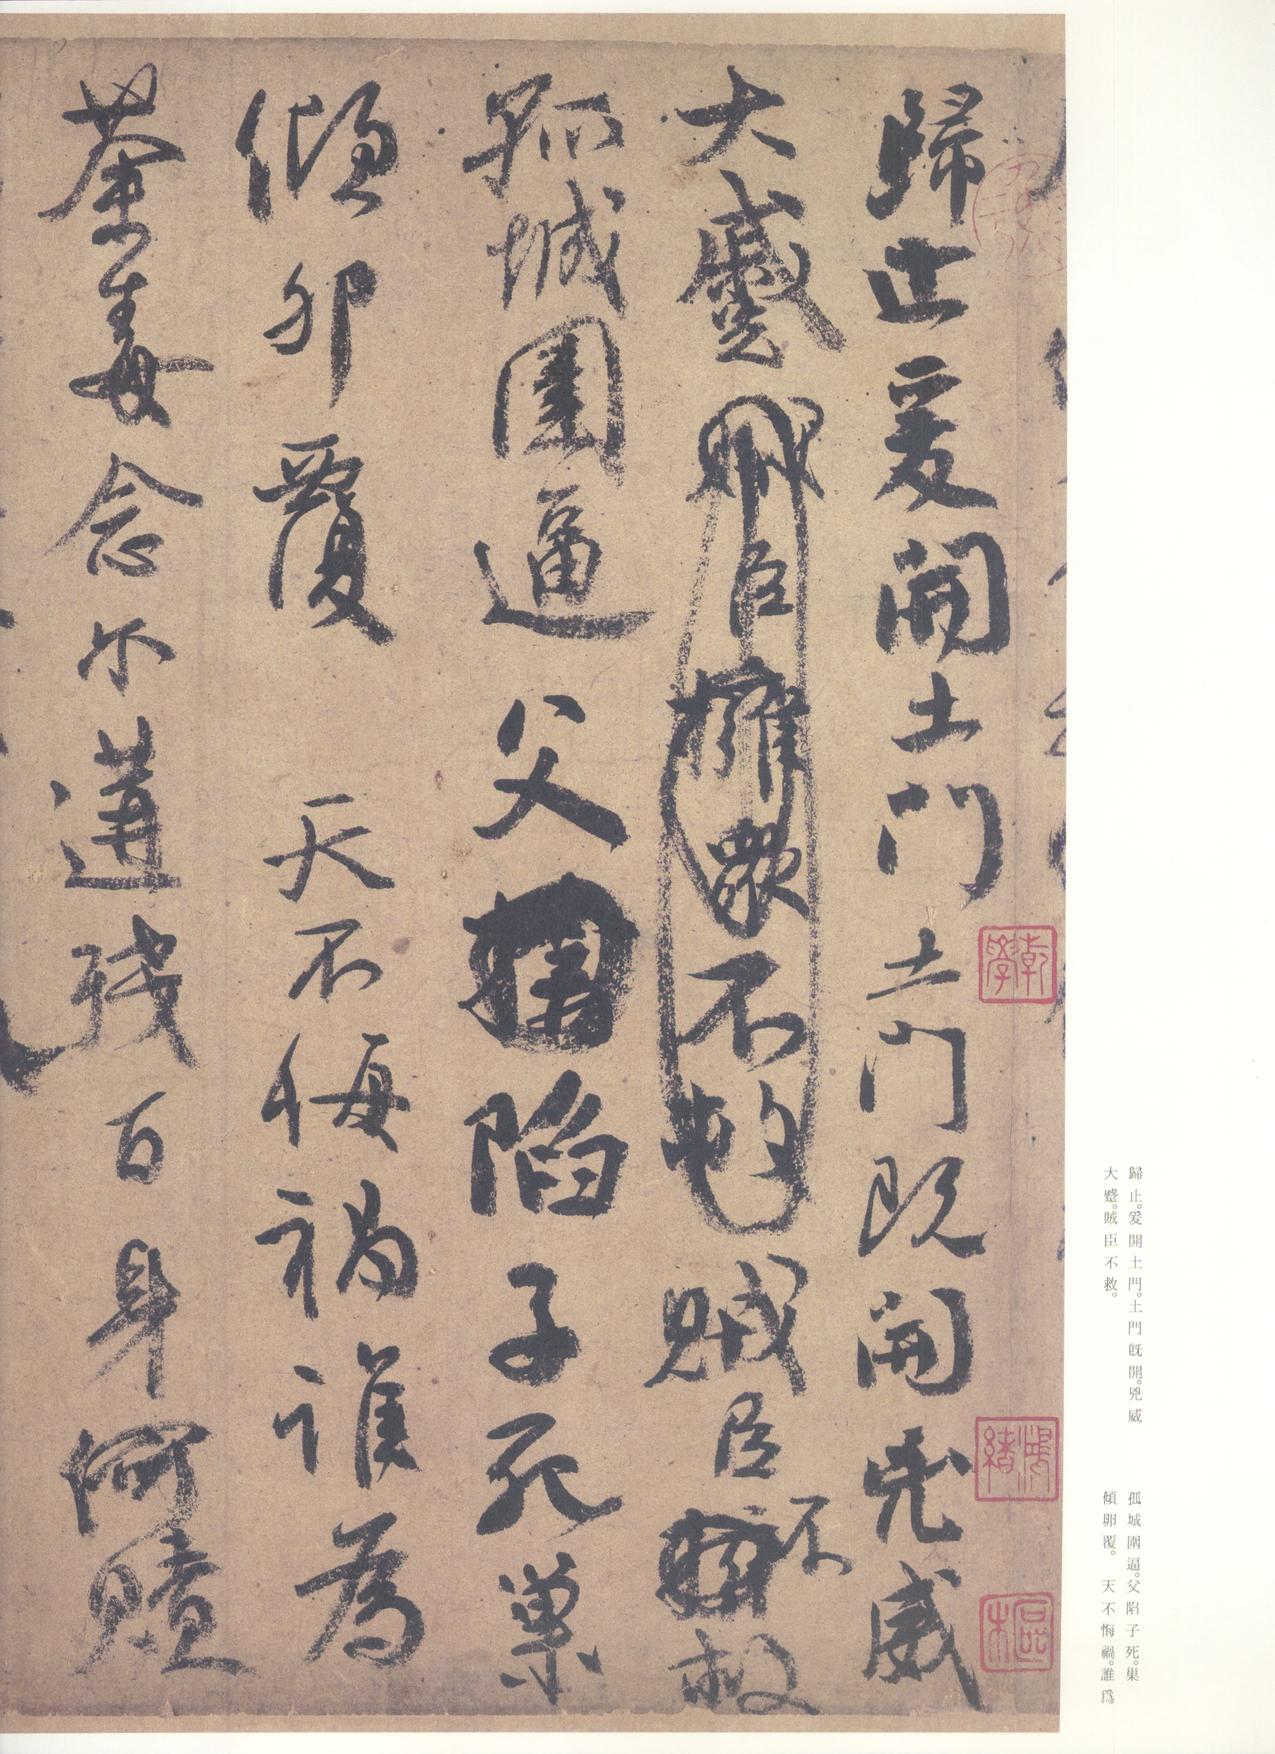 歸止爰開土門土門既開兇威
大蹙賊臣擁衆不救賊臣不救
孤城圍逼父陷子死巢
傾卵覆 天不悔禍誰為
荼毒念尔遘殘百身何贖
歸止。爰開土門。土門旣開。兇威
大蹙。賊臣不救。
孤城圍逼。父陷子死。巢
傾卵覆。 天不悔禍。誰爲
乾學